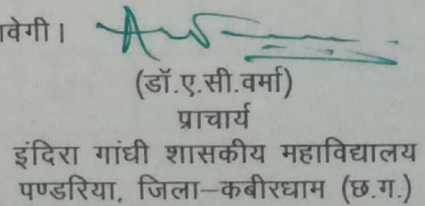 ावेगी।
(डॉ.ए.सी.वर्मा)
प्राचार्य
इंदिरा गांधी शासकीय महाविद्यालय
पण्डरिया, जिला–कबीरधाम (छ.ग.)